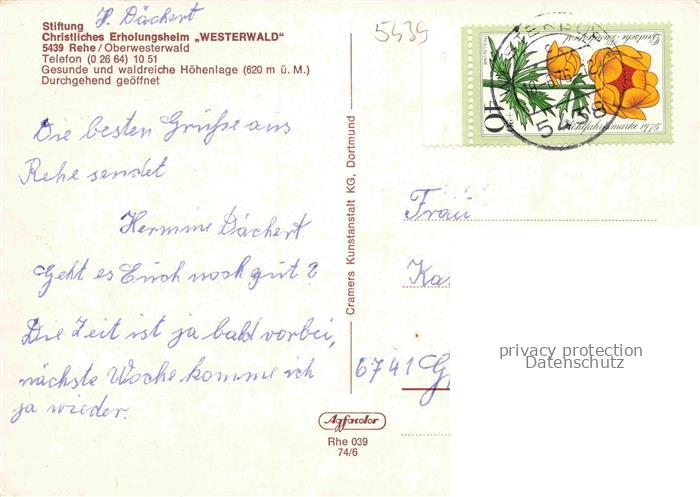 H. Dächert
Stiftung
Christliches Erholungsheim „WESTERWALD"
5439 Rehe / Oberwesterwald
Telefon (0 26 64) 10 51
Gesunde und waldreiche Höhenlage (620 m ü. M.)
Durchgehend geöffnet
Die besten Grüße aus
Rehe sendet
Hermine Dächert
Geht es Euch noch gut?
Die Zeit ist ja bald vorbei,
nächste Woche komme ich
ja wieder.
Cramers Kunstanstalt KG, Dortmund
Agfacolor
Rhe 039
74/6
5439
Deutsche Bundespost
Wohlfahrtsmarke 5
40
5438
Frau
6741
privacy protection
Datenschutz